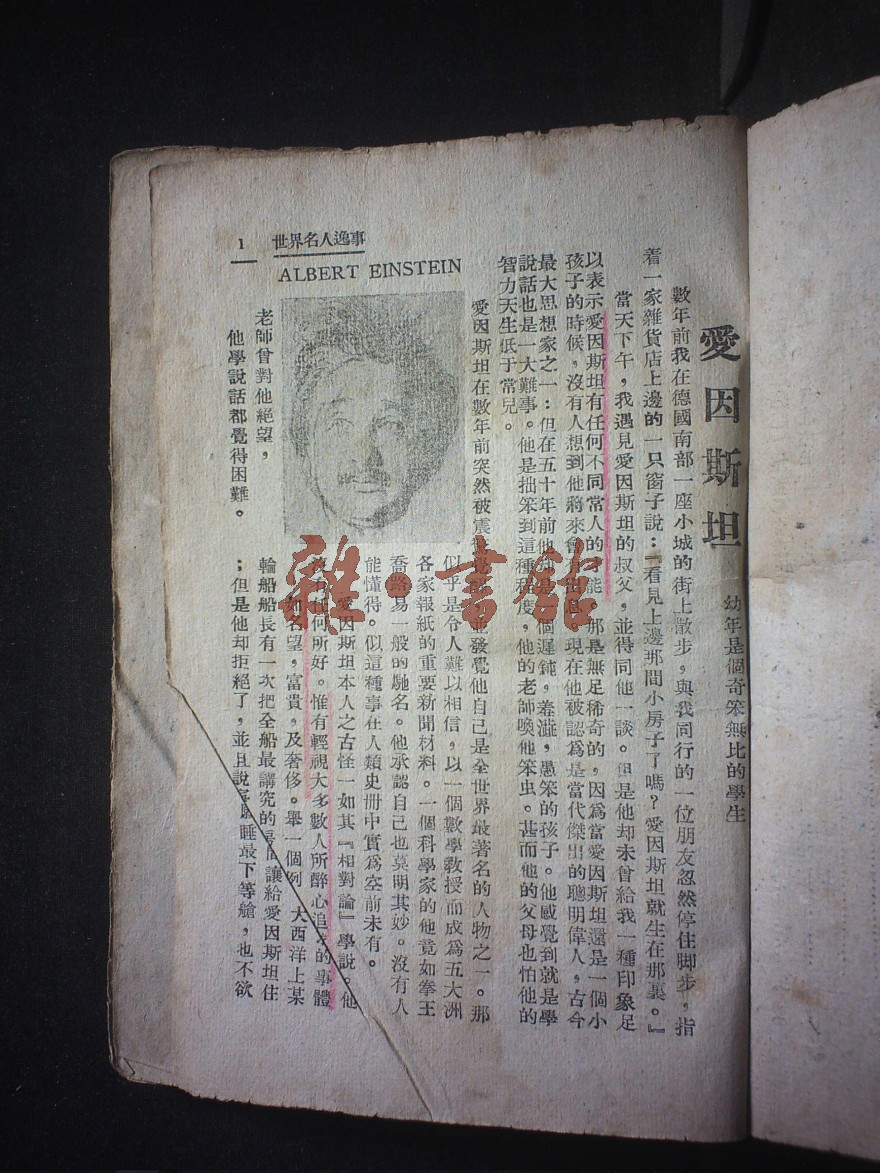 愛因斯坦
幼年是個奇笨無比的學生
數年前我在德國南部一座小城的街上散步，與我同行的一位朋友忽然停住脚步，指
着一家雜貨店上邊的一只窗子說：『看見上邊那間小房子了嗎？愛因斯坦就生在那裏。』
當天下午，我遇見愛因斯坦的叔父，並得同他一談。但是他却未曾給我一種印象足
以表示愛因斯坦有任何不同常人的 能，那是無足稀奇的，因爲當愛因斯坦還是一個小
孩子的時候，沒有人想到他將來會 出息。現在他被認爲是當代傑出的聰明偉人，古今
最大思想家之一：但在五十年前他却是一個遲鈍，羞澁，愚笨的孩子。他感覺到就是學
說話也是一大難事。他是拙笨到這種程度，他的老師喚他笨虫。甚而他的父母也怕他的
智力天生低于常兒。
愛因斯坦在數年前突然被震 並發覺他自己是全世界最著名的人物之一。那
似乎是令人難以相信，以一個數學教授而成爲五大洲
各家報紙的重要新聞材料。一個科學家的他竟如拳王
喬路易一般的馳名。他承認自己也莫明其妙。沒有人
能懂得。似這種事在人類史册中實爲空前未有。
愛因斯坦本人之古怪一如其『相對論』學說。他
沒有任何所好。惟有輕視大多數人所醉心追求的事體
如名望，富貴，及奢侈。舉一個例 大西洋上某
輪船船長有一次把全船最講究的房間讓給愛因斯坦住
；但是他却拒絕了，並且說寧願睡最下等艙，也不欲
ALBERT EINSTEIN
老師曾對他絕望，
他學說話都覺得困難。
世界名人逸事
1
雜·書館